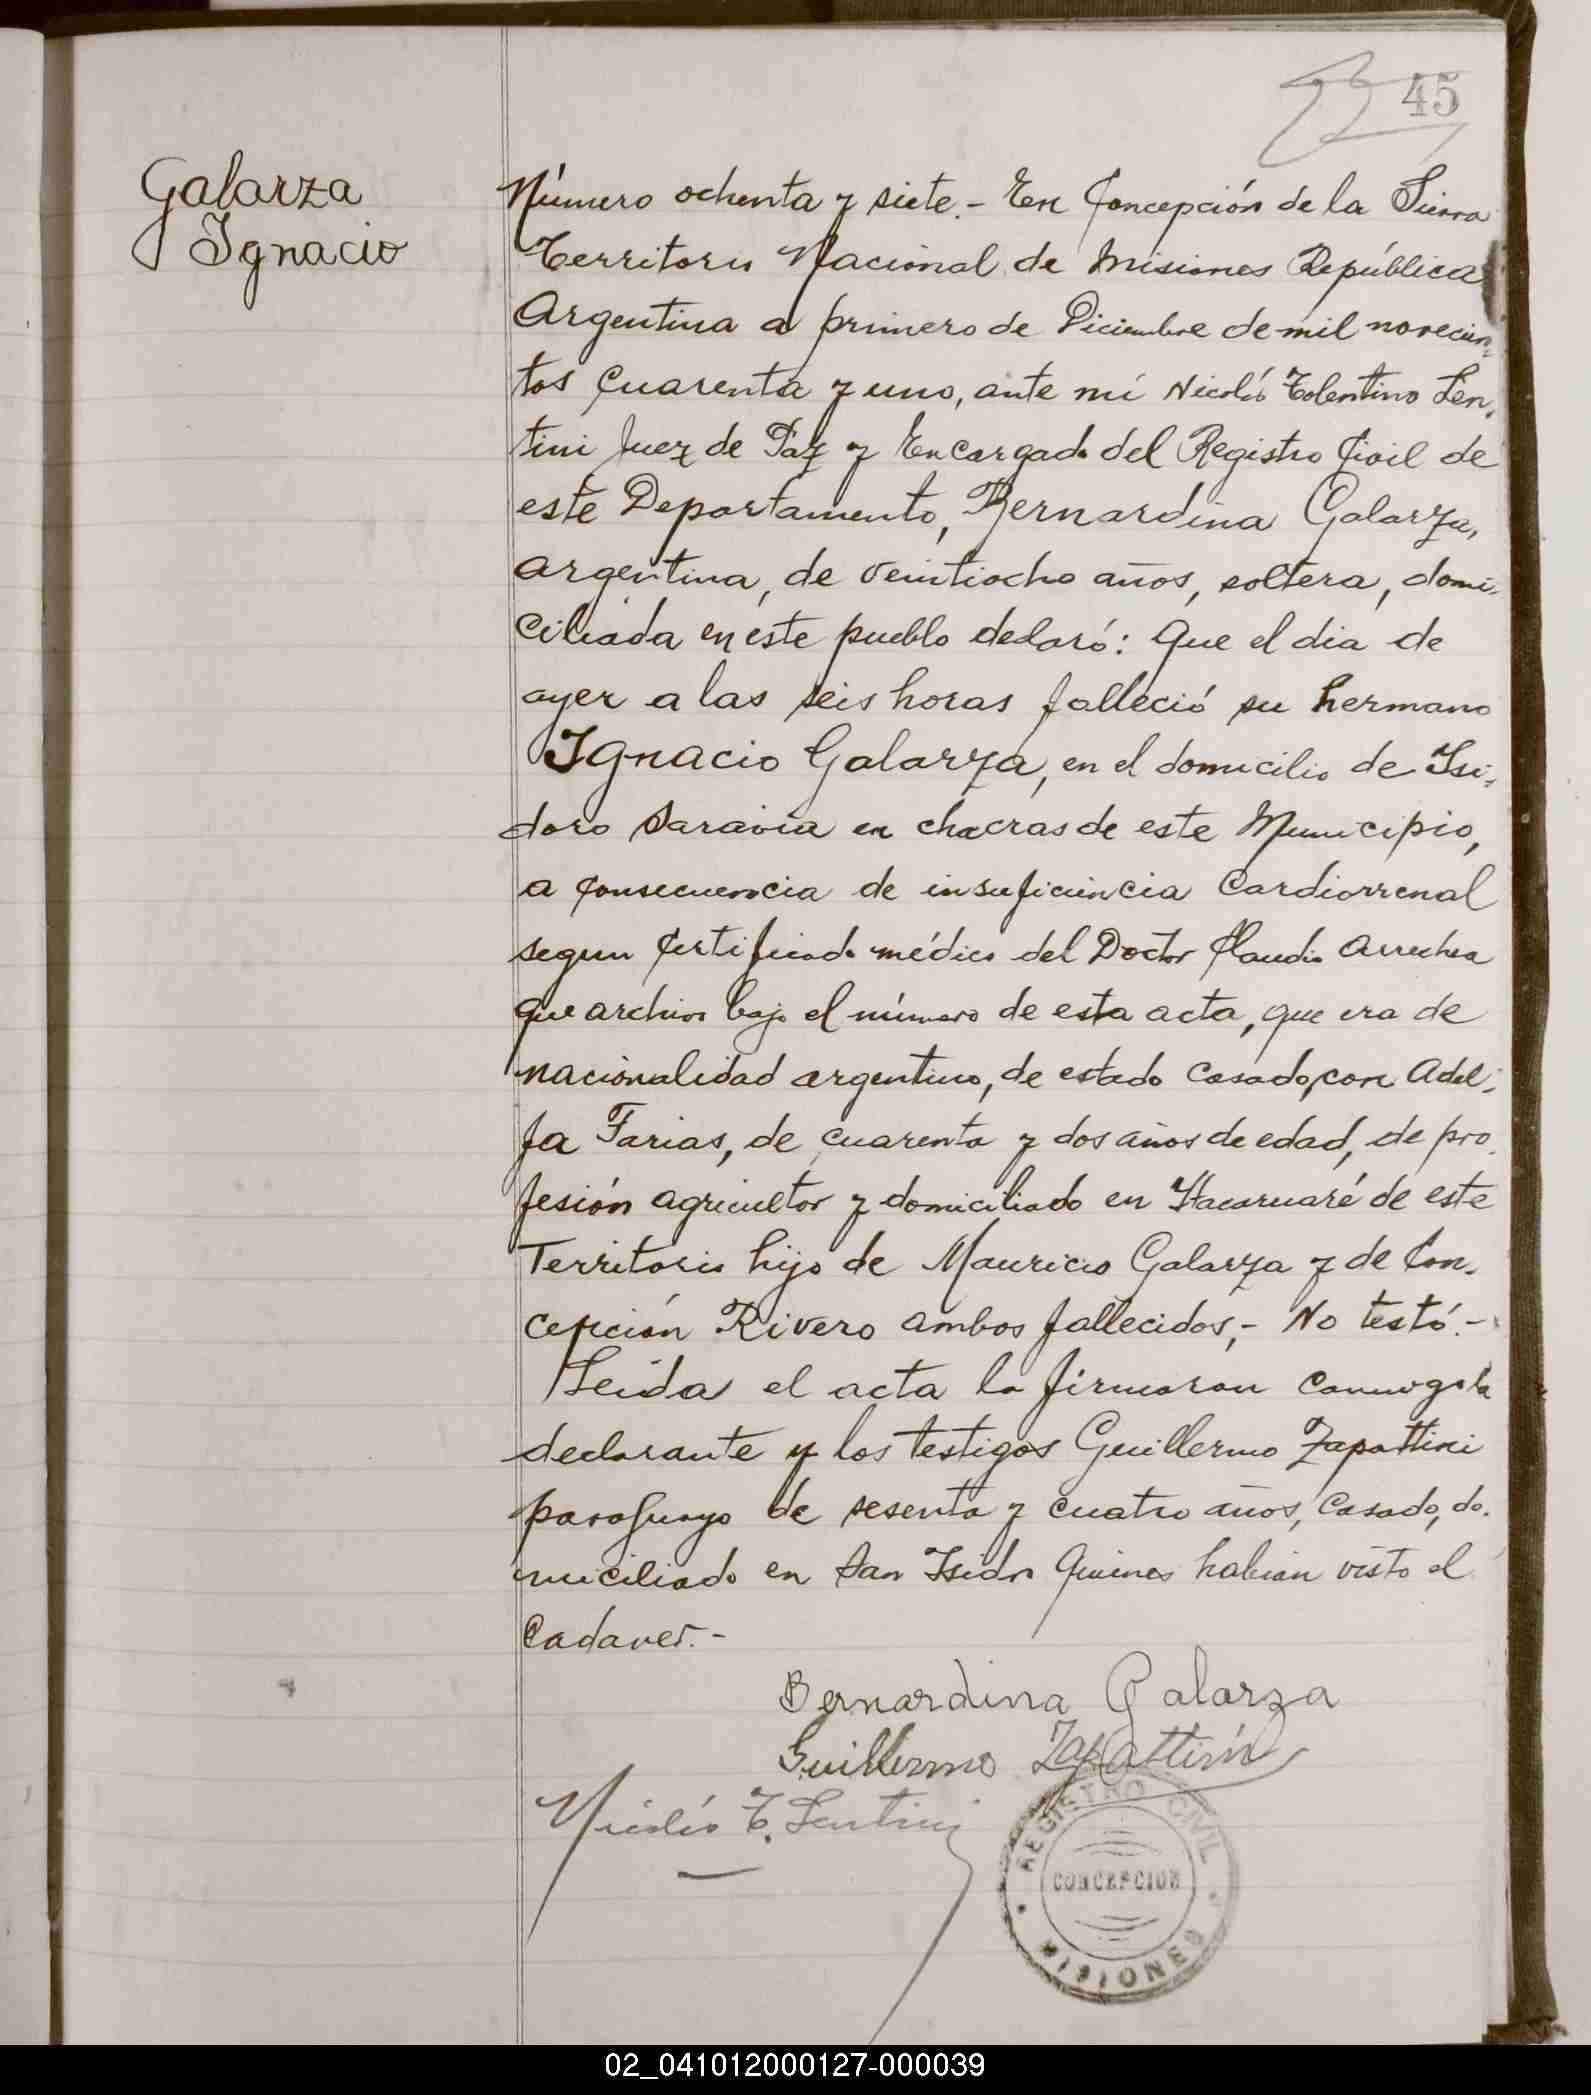 45
Galarza
Ignacio
Número ochenta y siete.- En Concepción de la Sierra
Territorio Nacional de Misiones República
Argentina a primero de Diciembre de mil novecien-
tos cuarenta y uno, ante mí Nicolás Tolentino Len-
tini Juez de Paz y Encargado del Registro Civil de
este Departamento, Bernardina Galarza,
argentina, de veintiocho años, soltera, domi-
ciliada en este pueblo declaró: Que el dia de
ayer a las seis horas falleció su hermano
Ignacio Galarza, en el domicilio de Isi-
doro Saravia en chacras de este Municipio,
a consecuencia de insuficiencia Cardiorrenal
segun certificado médico del Doctor Claudio Arrechea
que archivo bajo el número de esta acta, que era de
nacionalidad argentino, de estado casado, con Adel-
fa Farias, de cuarenta y dos años de edad, de pro-
fesión agricultor y domiciliado en Itacaruaré de este
Territorio hijo de Mauricio Galarza y de Con-
cepción Rivero ambos fallecidos,- No testó.-
Leida el acta la firmaron conmigo la
declarante y los testigos Guillermo Zapattini
paraguayo de sesenta y cuatro años, casado, do-
miciliado en San Isidro quienes habian visto el
cadaver.-
Bernardina Galarza
Guillermo Zapattini
Nicolás T. Lentini
REGISTRO CIVIL
CONCEPCION
MISIONES
02_041012000127-000039